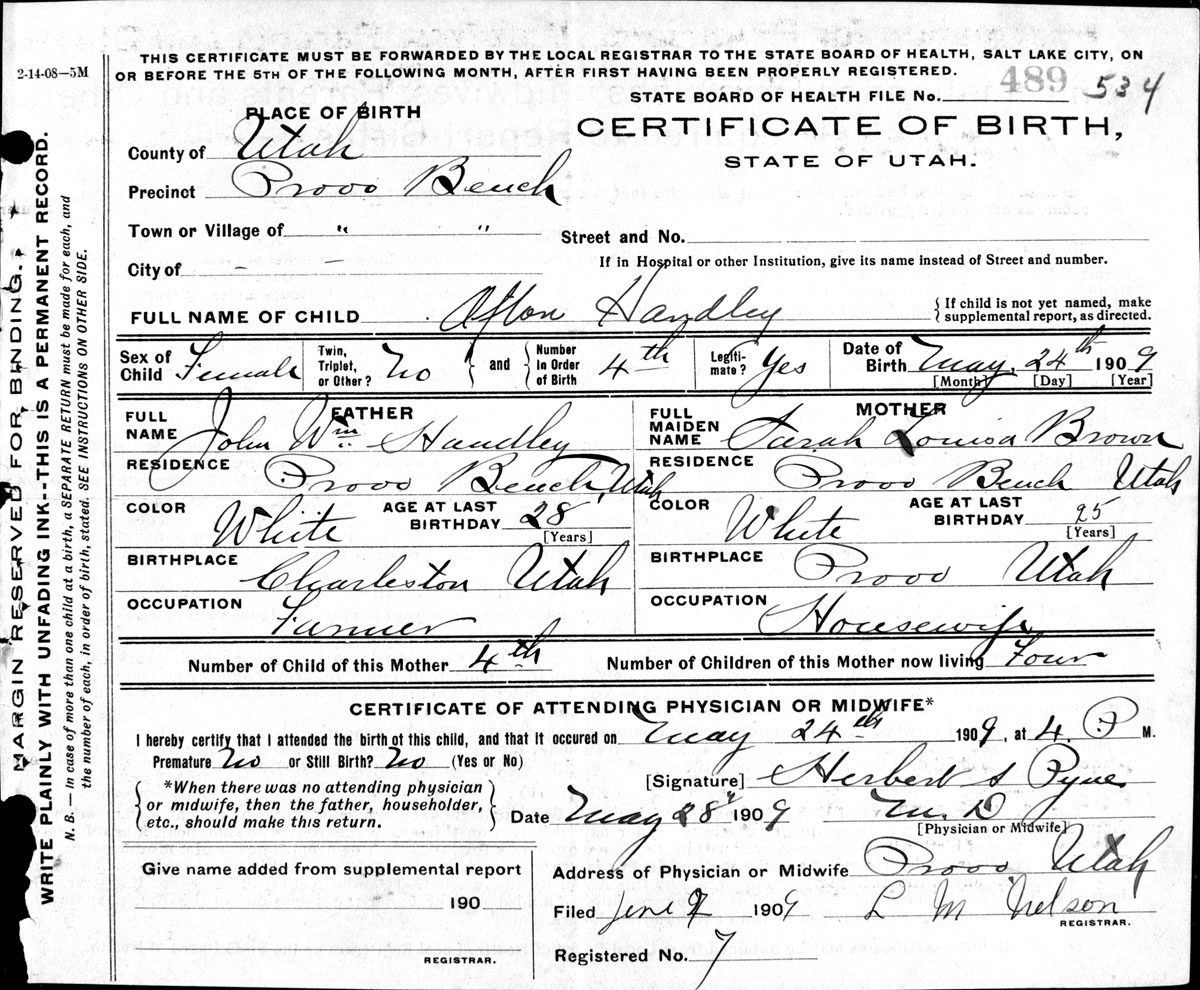 2-14-08—5M
THIS CERTIFICATE MUST BE FORWARDED BY THE LOCAL REGISTRAR TO THE STATE BOARD OF HEALTH, SALT LAKE CITY, ON
OR BEFORE THE 5TH OF THE FOLLOWING MONTH, AFTER FIRST HAVING BEEN PROPERLY REGISTERED.
STATE BOARD OF HEALTH FILE No. 489 534
PLACE OF BIRTH
CERTIFICATE OF BIRTH,
STATE OF UTAH.
County of Utah
Precinct Provo Bench
Town or Village of " "
Street and No.
City of -
If in Hospital or other Institution, give its name instead of Street and number.
FULL NAME OF CHILD Afton Handley
{If child is not yet named, make
supplemental report, as directed.
Sex of Child Female
Twin, Triplet, or Other? No
and
Number in Order of Birth 4th
Legiti-mate? Yes
Date of Birth May 24th 1909
[Month] [Day] [Year]
FATHER
FULL NAME John Wm Handley
RESIDENCE Provo Bench, Utah
COLOR White
AGE AT LAST BIRTHDAY 28
[Years]
BIRTHPLACE Charleston Utah
OCCUPATION Farmer
MOTHER
FULL MAIDEN NAME Sarah Louisa Brown
RESIDENCE Provo Bench Utah
COLOR White
AGE AT LAST BIRTHDAY 25
[Years]
BIRTHPLACE Provo Utah
OCCUPATION Housewife
Number of Child of this Mother 4th
Number of Children of this Mother now living Four
CERTIFICATE OF ATTENDING PHYSICIAN OR MIDWIFE*
I hereby certify that I attended the birth of this child, and that it occured on May 24th 1909, at 4. P M.
Premature No or Still Birth? No (Yes or No)
[Signature] Herbert S Pyne
{*When there was no attending physician
or midwife, then the father, householder,
etc., should make this return.}
Date May 28" 1909 M. D
[Physician or Midwife]
Give name added from supplemental report
190
REGISTRAR.
Address of Physician or Midwife Provo Utah
Filed June 1909 L M Nelson
REGISTRAR.
Registered No. 7
MARGIN RESERVED FOR BINDING.
WRITE PLAINLY WITH UNFADING INK--THIS IS A PERMANENT RECORD.
N. B. — In case of more than one child at a birth, a SEPARATE RETURN must be made for each, and
the number of each, in order of birth, stated. SEE INSTRUCTIONS ON OTHER SIDE.